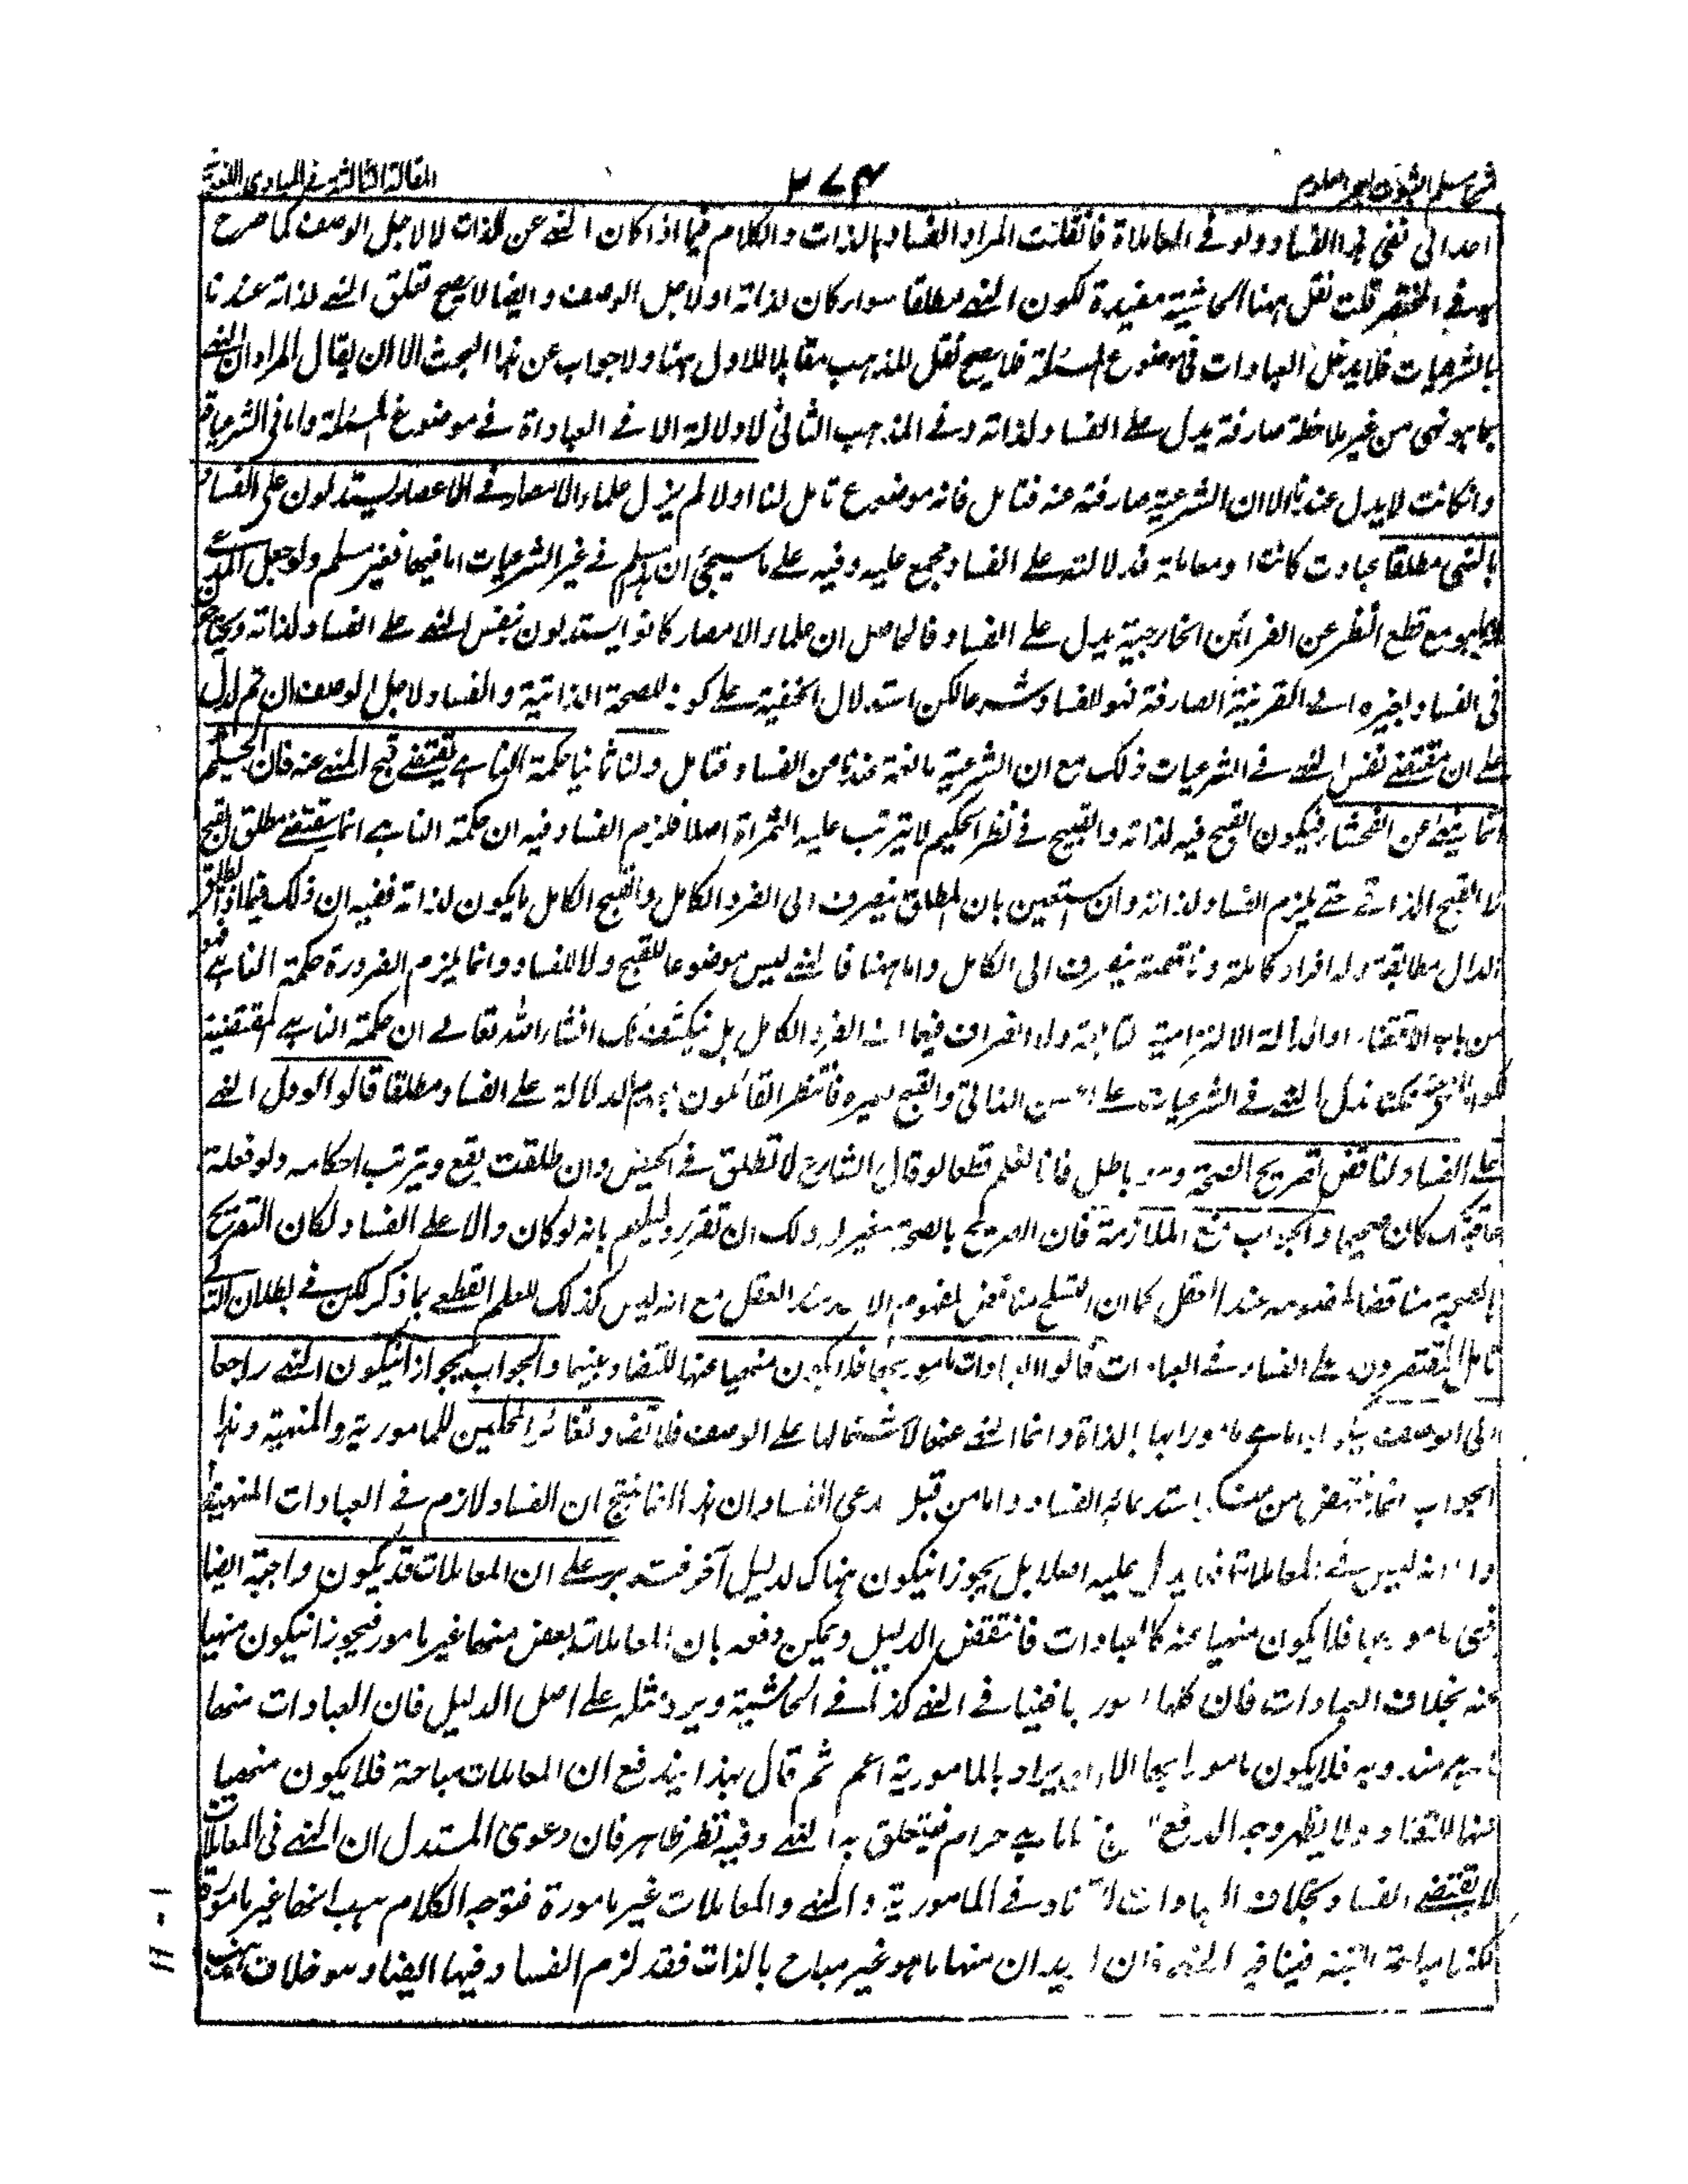 شرح مسلم الثبوت لبحر العلوم
٢٧٤
المقالة الثالثة في المبادي اللغوية
احد الى نفى هذا الفساد ولو في المعاملاة فانقلت المراد الفساد بالذات والكلام فيما اذا كان النهي عن الذات لا لاجل الوصف كما صرح
به في المختصر قلت نقل ههنا الحاشية مفيدة لكون النهي مطلقا سواء كان لذاته او لاجل الوصف وايضا لا يصح تعلق النهي لذاته عندنا
بالشرعيات فلا يدخل العبادات في موضوع المسئلة فلا يصح نقل المذهب مقابلا للاول ههنا ولا جواب عن هذا البحث الا ان يقال المراد ان النهي
بما هو نهى من غير ملاحظة صارفة يدل على الفساد لذاته وفي المذهب الثاني لا دلالة الا في العباداة في موضوع المسئلة واما في الشرعيات
وانكانت لا يدل عندنا الا ان الشرعية صارفة عنه فتامل فانه موضع تامل لنا اولا لم يزل علماء الامصار في الاعصار يستدلون على الفساد
بالنهى مطلقا عبادت كانت او معاملة فدلالته على الفساد مجمع عليه وفيه على ما سيجئ ان سلم في غير الشرعيات اما فيها فغير مسلم ولو جعل المدعى
مع قطع النظر عن القرائن الخارجية يدل على الفساد فالحاصل ان علماء الامصار كانوا يستدلون بنفس النهي على الفساد لذاته ويحتاج
في الفساد لغيره الى القرينة الصارفة فهو للفساد شرعا لكن استدلال الحنفية على كونه للصحة الذاتية والفساد لاجل الوصف ان تم لدل
على ان مقتضى نفس النهي في الشرعيات ذلك مع ان الشرعية مانعة عندنا من الفساد فتامل ولنا ثانيا حكمة الناهي يقتضي قبح المنهي عنه فان الحكيم
انما ينهى عن الفحشاء فيكون القبح فيه لذاته والقبيح في نظر الحكيم لا يترتب عليه الثمراة اصلا فلزم الفساد فيه ان حكمة الناهي انما يقتضي مطلق القبح
لا القبح الذاتي حتى يلزم الفساد لذاته وان ستعين بان المطلق ينصرف الى الفرد الكامل والقبح الكامل ما يكون لذاته ففيه ان ذلك فيما اذا
الدال مطابقة وله افراد كاملة وناقصة ينصرف الى الكامل واما ههنا فالنهي ليس موضوعا للقبح ولا للفساد وانما يلزم لضرورة حكمة الناهي فهو
من باب الاقتضاء او الدلالة الالتزامية ولا انصراف فيهما الى الفرد الكامل بل نيكشف لك انشاء الله تعالى ان حكمة الناهي المقتضية
النهي في الشرعيات على الحسن الذاتي والقبح لغيره فانتظر القائلون بعدم الدلالة على الفساد مطلقا قالوا لو دل النهي
على الفساد لناقض تصريح الصحة وهو باطل فانا نعلم قطعا لو قال الشارع لا تطلق في الحيض وان طلقت يقع ويترتب احكامه ولو فعلت
عاقبتك كان صحيحا والجواب منع الملازمة فان الصريح بالصحة مغير له ولك ان تقرر دليلهم بانه لو كان دالا على الفساد لكان التصريح
بالصحة مناقضا لمفهومه عند العقل كما ان التسليم مناقض لمفهوم عند العقل مع انه ليس كذلك للعلم القطعي بما ذكر لكن في بطلان التالي
تامل المقتصرون على الفساد في العبادات قالوا العبادات مامور بها فلا يكون منهيا عنها للتضاد بينهما والجواب يجوز ان يكون النهي راجعا
الى الوصف مامورا بها بالذاة وانما النهي عنها لاشتمالها على الوصف فلا تضاد لتغائر المحلين للمامورية والمنهية وهذا
الجواب انما ينتهض من واما من قبل مدعى الفساد ان هذا انما ينتج ان الفساد لازم في العبادات المنهية
واما انه ليس في المعاملات فما يدل عليه اصلا بل يجوز ان يكون هناك لدليل آخر فتدبر على ان المعاملات قد يكون واجبة ايضا
فهى مامور بها فلا يكون منهيا عنه كالعبادات فانتقض الدليل ويمكن دفعه بان المعاملات بعض منها غير مامور فيجوز ان يكون منهيا
عنه بخلاف العبادات فان كلها مامور بها فينافي النهي كذا في الحاشية ويرد مثله على اصل الدليل فان العبادات منها
ما هي مندوبة فلا يكون مامورا بها الا ان يراد بالمامورية اعم ثم قال بهذا يندفع ان المعاملات مباحة فلا يكون منهيا
عنها للتضاد ولا يظهر وجه الدفع ما هي حرام فيتعلق به النهي وفيه نظر ظاهر فان دعوى المستدل ان النهي في المعاملات
لا يقتضي الفساد بخلاف العبادات للتضاد في المامورية والنهي والمعاملات غير مامورة فتوجه الكلام بانها غير مامورة
لكنها مباحة البتة فينافي النهي فان اريد ان منها ما هو غير مباح بالذات فقد لزم الفساد فيها ايضا وهو خلاف